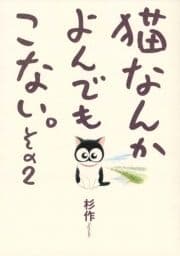 猫なんか
よんでも
こない。
その2
杉作